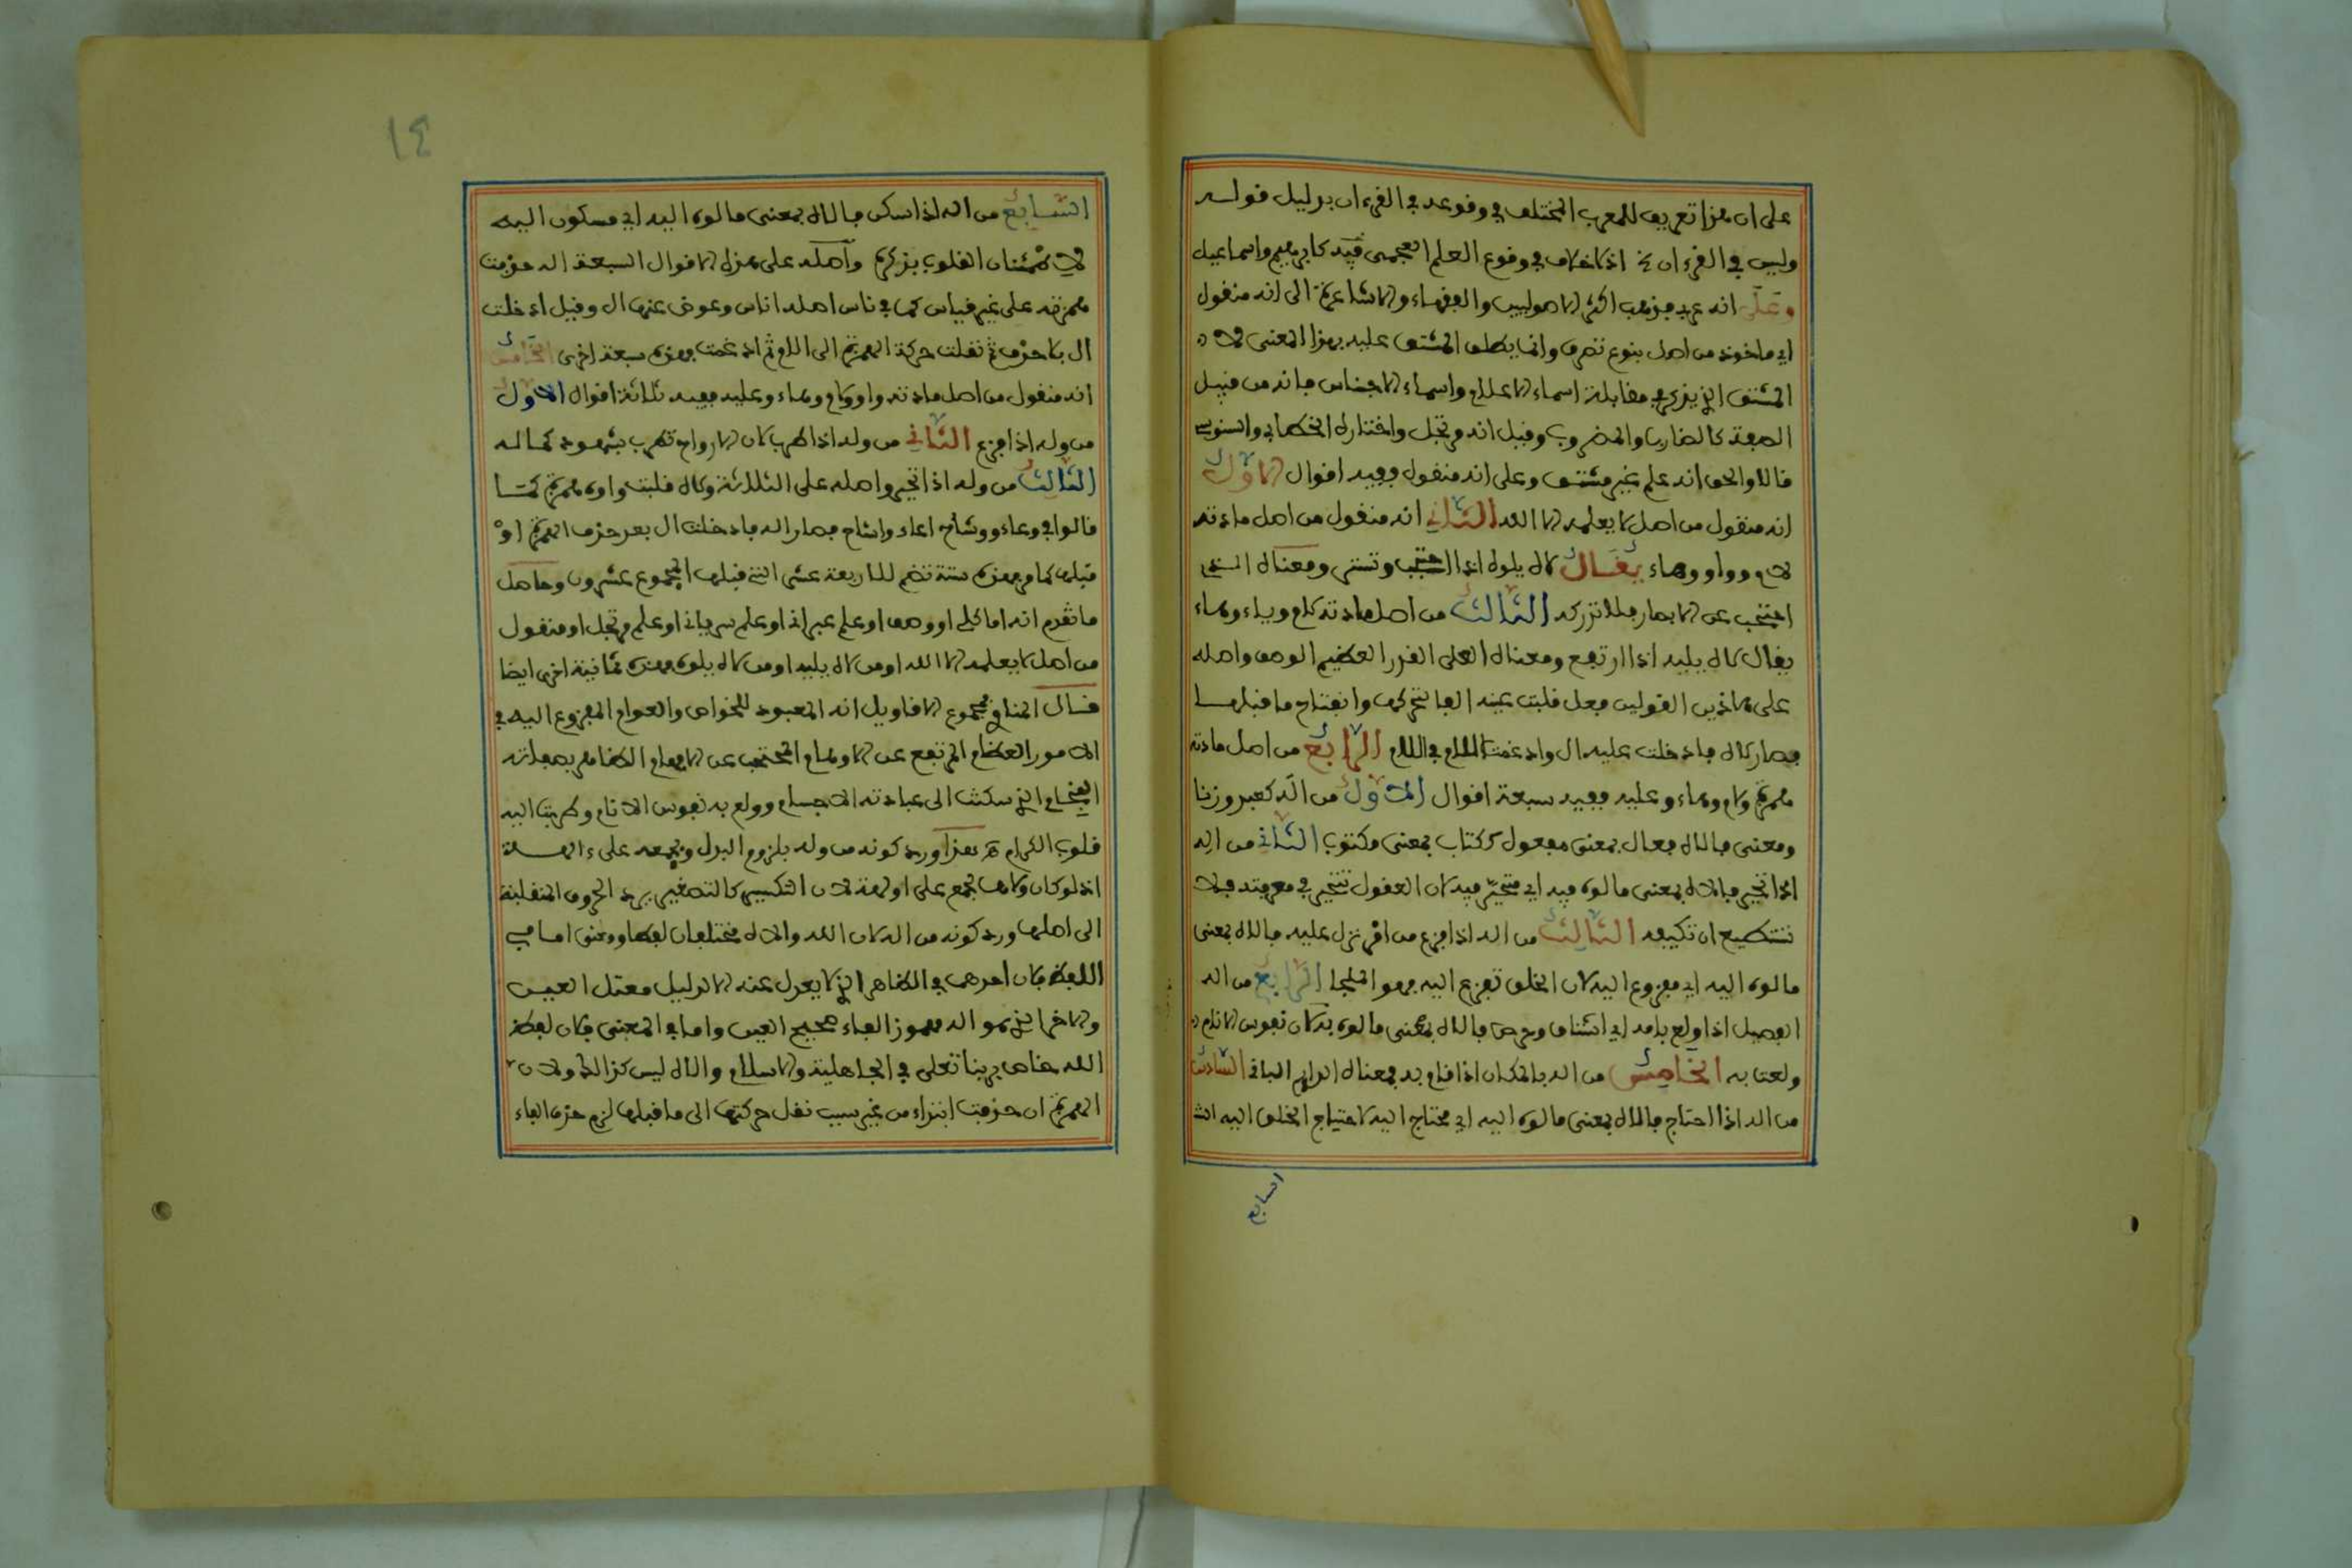 على ان هذا تعريف للمعرب المختلف في وقوعه في القرءان بدليل قوله
وليس في القرءان اذ لا خلاف في وقوع العلم العجمي فيه كابراهيم واسماعيل
وعلى انه عربي فذهب اكثر الاصوليين والفقهاء والاشاعرة الى انه منقول
اي ماخوذ من اصل بنوع تصرف وانما يطلق المشتق عليه بهذا المعنى لان
المشتق الذي يذكر في مقابلة اسماء الاعلام واسماء الاجناس فانه من قبيل
الصفة كالضارب والمضروب وقيل انه مرتجل واختاره الخطابي والسنوسي
قالا والحق انه علم غير مشتق وعلى انه منقول ففيه اقوال الاول
انه منقول من اصل لا يعلمه الا الله الثاني انه منقول من اصل مادته
لام وواو وهاء يقال لاه يلوه اذا احتجب وتستر ومعناه الذي
احتجب عن الابصار فلا تدركه الثالث من اصل مادته لام وياء وهاء
يقال لاه يليه اذا ارتفع ومعناه العلي القدر العظيم الوصف واصله
على هاذين القولين فعل قلبت عينه الفا لتحركها وانفتاح ما قبلها
فصار لاه فادخلت عليه ال وادغمت اللام في اللام الرابع من اصل مادته
همزة ولام وهاء وعليه ففيه سبعة اقوال الاول من اله كعبد وزنا
ومعنى فالاه فعال بمعنى مفعول ككتاب بمعنى مكتوب الثاني من اله
اذا تحير فالاه بمعنى مالوه فيه اي متحير فيه لان العقول تتحير في معرفته فلا
تستطيع ان تكيفه الثالث من اله اذا فزع من امر نزل عليه فالاه بمعنى
مالوه اليه اي مفزوع اليه لان الخلق تفزع اليه فهو الملجا الرابع من اله
الفصيل اذا ولع بامه اي اشتاق وحرص فالاه بمعنى مالوه به لان نفوس الانام
ولعتا به الخامس من اله بالمكان اذا اقام به فمعناه الدايم الباقي السادس
من اله اذا احتاج فالاه بمعنى مالوه اليه اي محتاج اليه لاحتياج الخلق اليه
السابع
١٤
السابع من اله اذا سكن فالاه بمعنى مالوه اليه اي مسكون اليه
لاطمئنان القلوب بذكره واصله على هذه الاقوال السبعة اله حذفت
همزته على غير قياس كما في ناس اصله اناس وعوض عنها ال وقيل ادخلت
ال بلا حذف ثم نقلت حركة الهمزة الى اللام ثم ادغمت فهذه سبعة اخرى الخامس
انه منقول من اصل مادته واو ولام وهاء وعليه ففيه ثلاثة اقوال الاول
من وله اذا فزع الثاني من وله اذا طرب لان الارواح تطرب بشهود كماله
الثالث من وله اذا تحير واصله على الثلاثة ولاه قلبت واوه همزة كما
قالوا في وعاء ووشاح اعاء واشاح فصار اله فادخلت ال بعد حذف الهمزة او
قبلها كما مر فهذه ستة تضم للاربعة عشر التي قبلها المجموع عشرون وحاصل
ما تقدم انه اما كلي او وصف او علم عبراني او علم سرياني او علم مرتجل او منقول
من اصل لا يعلمه الا الله او من لاه يليه او من لاه يلوه فهذه ثمانية اخرى ايضا
قال المناوي مجموع الاقاويل انه المعبود للخواص والعوام المفزوع اليه في
الامور العظام المرتفع عن الاوهام المحتجب عن الافهام الظاهر بصفاته
الفخام الذي سكنت الى عبادته الاجسام وولع به نفوس الانام وطربت اليه
قلوب الكرام هذا ورد كونه من وله بلزوم البدل وبجمعه على ءالهة
اذ لو كان ولاها لجمع على اولهة لان التكسير كالتصغير يرد الحروف المنقلبة
الى اصلها ورد كونه من اله لان الله والاه مختلفان لفظا ومعنى اما في
اللفظ فلان احدهما في الظاهر الذي لا يعدل عنه الا لدليل معتل العين
والاخر الذي هو اله مهموز الفاء صحيح العين واما في المعنى فلان لفظ
الله خاص بربنا تعلى في الجاهلية والاسلام والاه ليس كذالك ولان
الهمزة ان حذفت ابتداء من غير سبب نقل حركتها الى ما قبلها لزم حذف الفاء